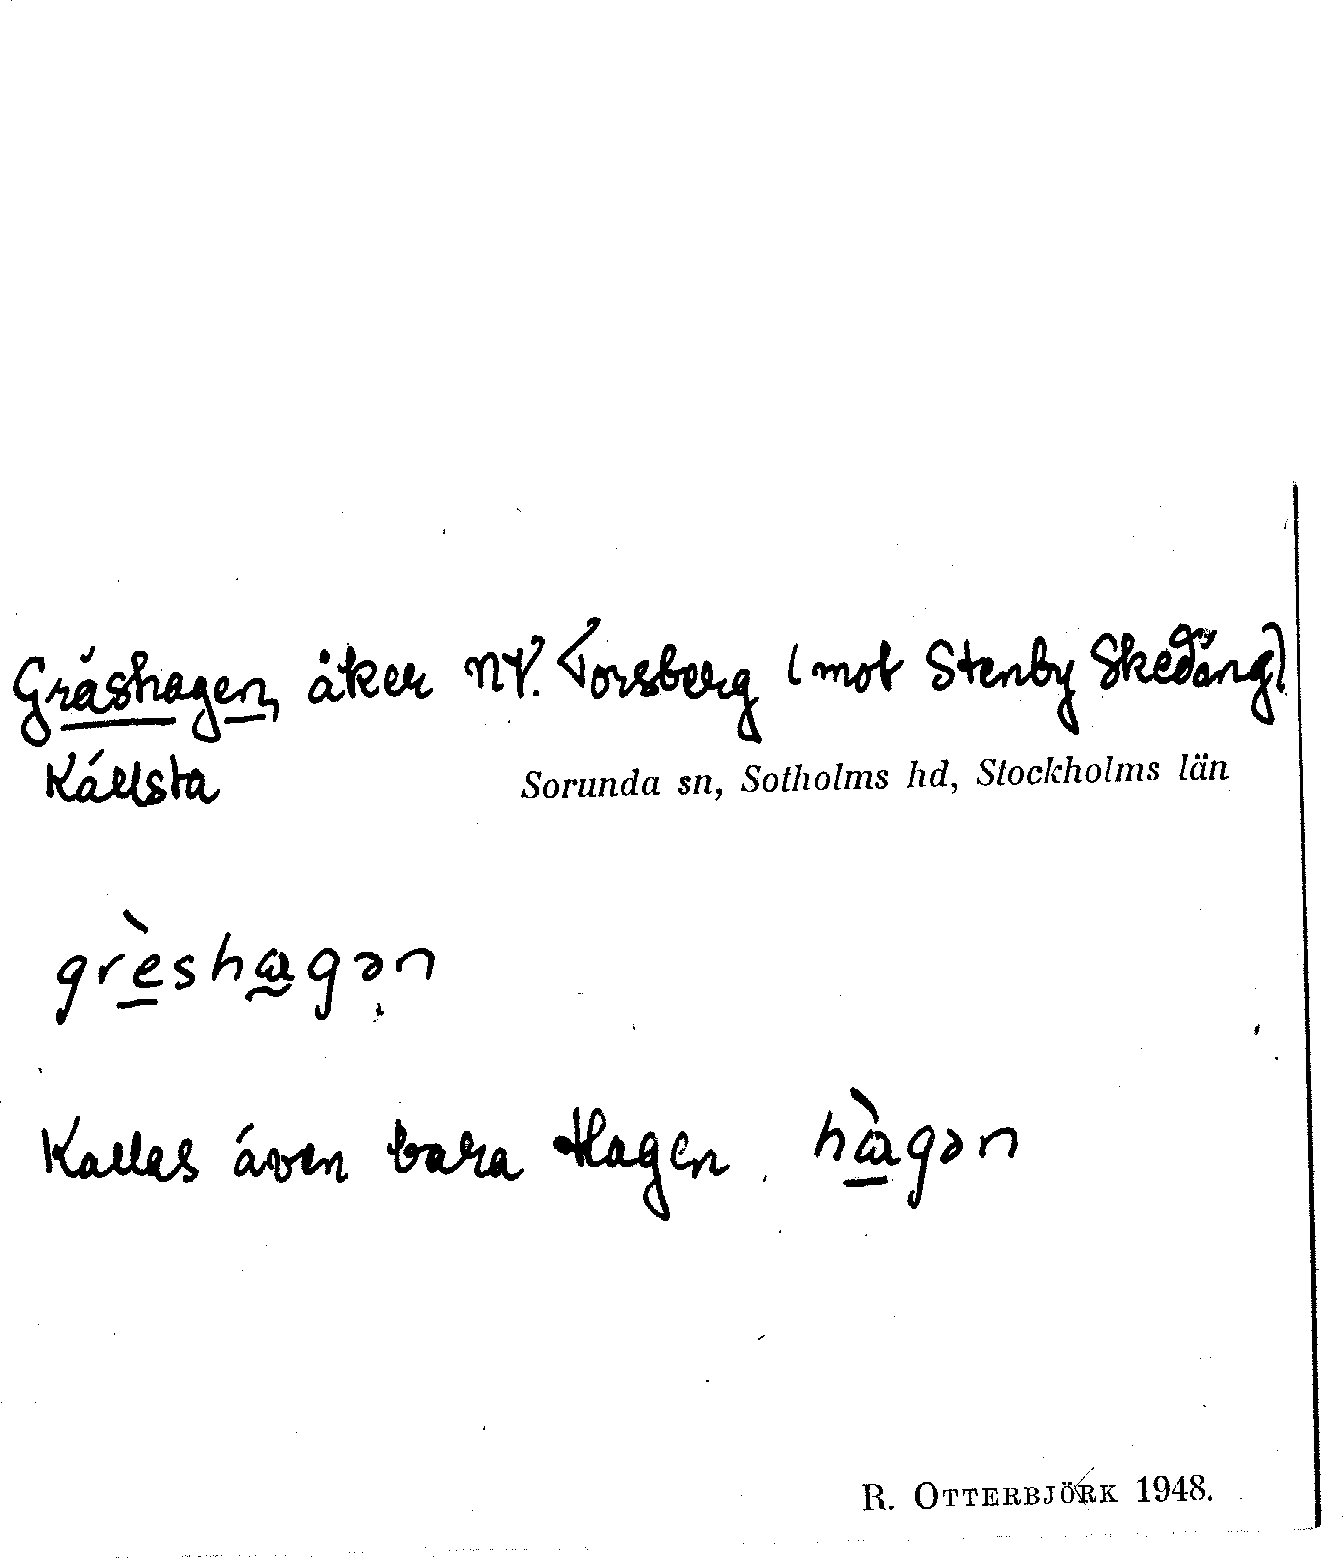 Gräshagen, åker NV. Torsberg (mot Stenby Skedäng)
Källsta
Sorunda sn, Sotholms hd, Stockholms län
grèshagən
Kallas även bara Hagen. hàgən
R. OTTERBJÖRK 1948.